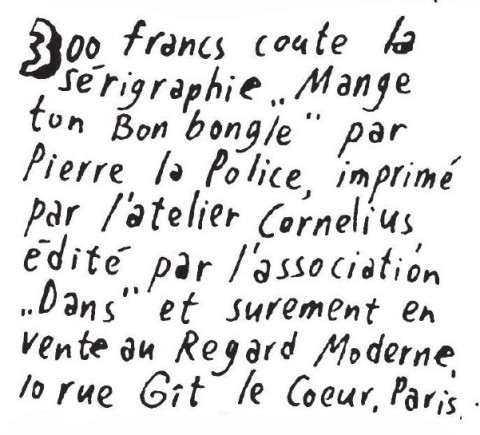 300 francs coute la
sérigraphie „Mange
ton Bon bongle" par
Pierre la Police, imprimé
par l'atelier Cornelius,
édité par l'association
„Dans" et surement en
vente au Regard Moderne,
10 rue Gît le Coeur, Paris.